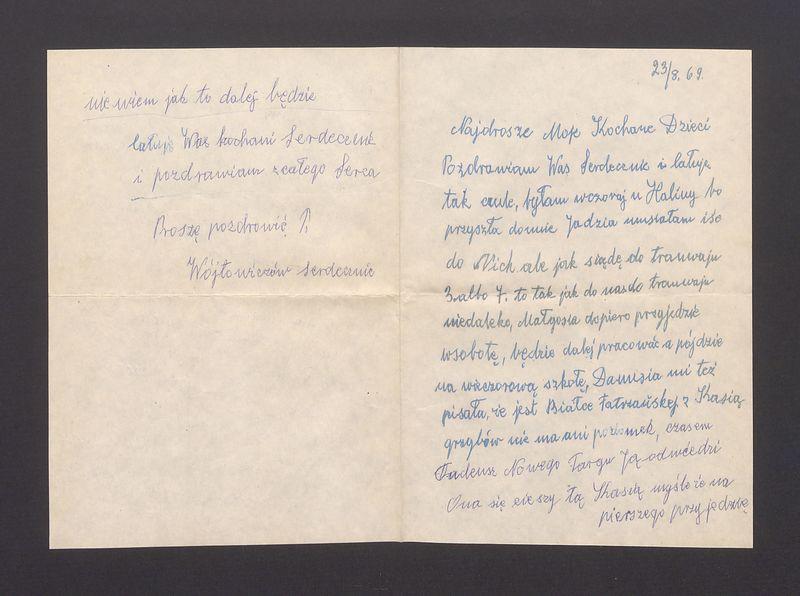 nie wiem jak to dalej będzie
całuję Was kochani Serdecznie
i pozdrawiam z całego Serca
Proszę pozdrowić P.
Wójtowiczów serdecznie
23/8.69.
Najdrosze Moje Kochane Dzieci
Pozdrawiam Was Serdecznie i całuję
tak czule, byłam wczoraj u Haliny bo
przyszła do mnie Jadzia musiałam iść
do Nich ale jak siądę do tramwaju
3. albo 7. to tak jak do nas do tramwaju
niedaleko, Małgosia dopiero przyjedzie
wsobotę, będzie dalej pracować a pójdzie
na wieczorową szkołę, Danusia mi też
pisała, że jest Białce Tatrzańskiej z Kasią
grzybów nie ma ani poziomek, czasem
Tadeusz Nowego Targu Ją odwiedzi
Ona się cieszy tą Kasią myślę że na
pierszego przyjedzie